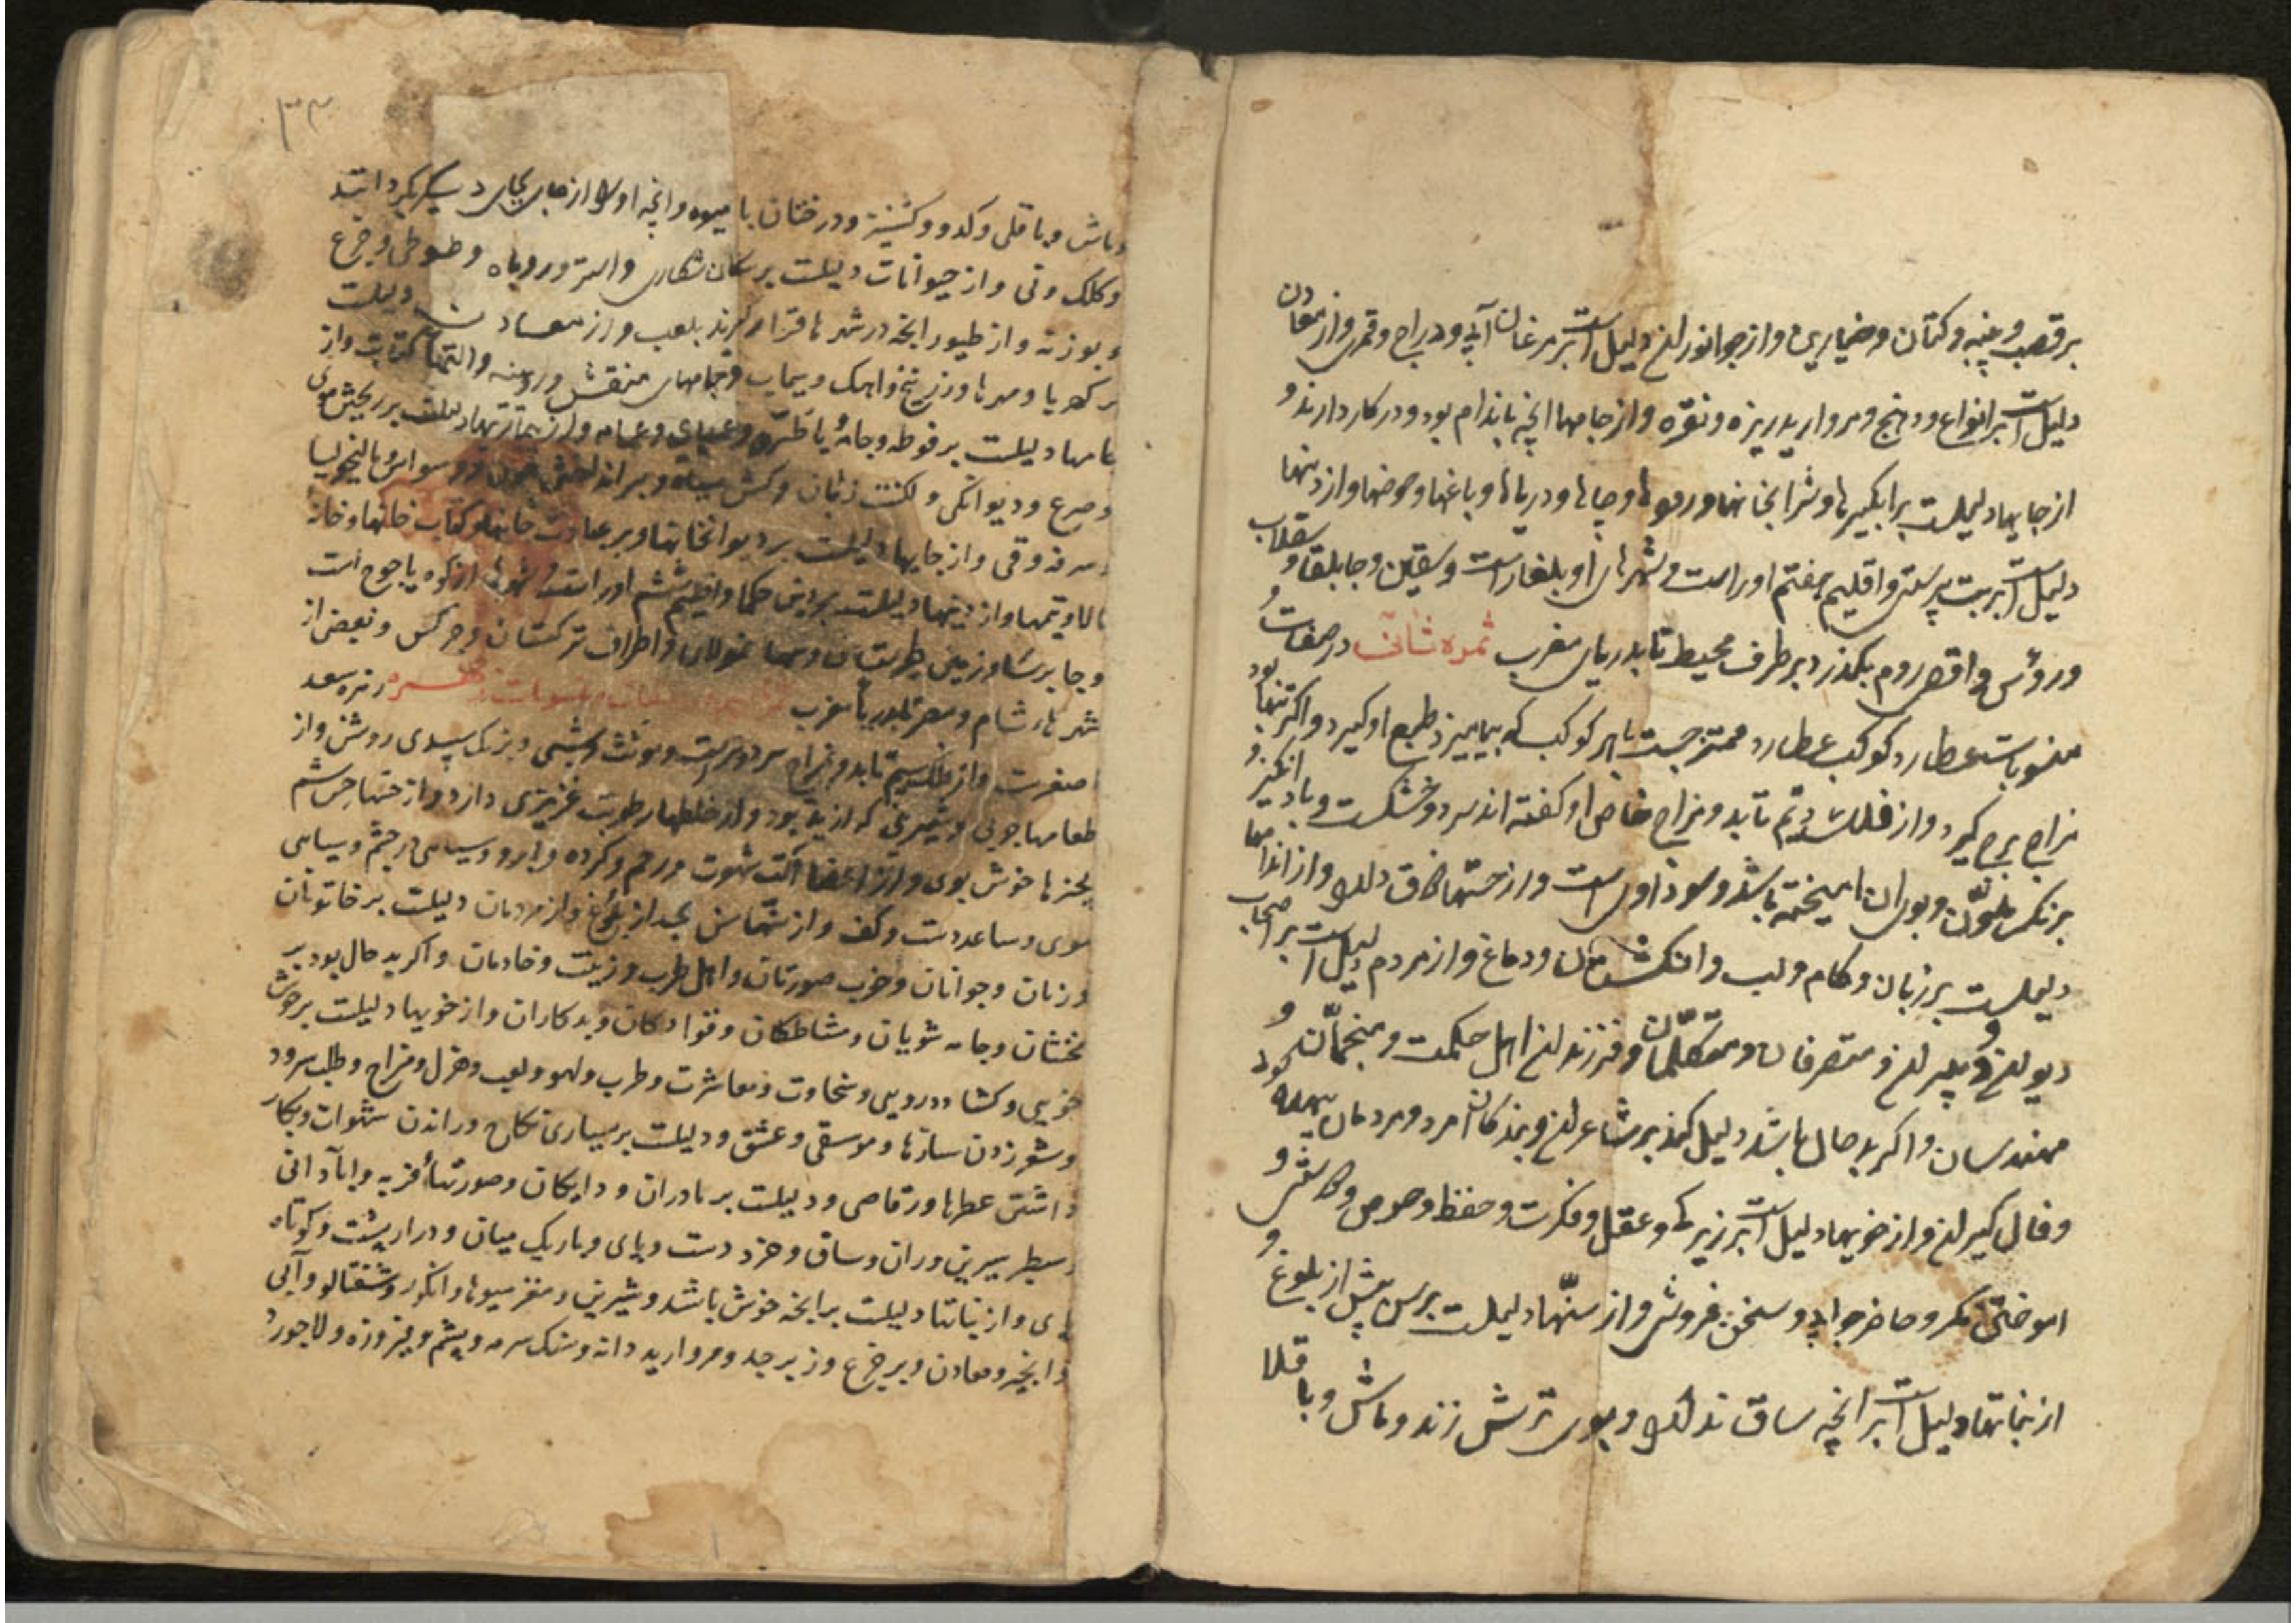 بر قصب و پنبه و کتان و خیارین و از جوانوران دلیل است بر مرغان آبی و دراج و قمری و از معادن
دلیل است بر انواع و دهنج و مروارید ریزه و نقره و از جامها انچه باندام بود و در کار دارند و
از جایها دلیلست بر ابگیرها و شرابخانها و رودها و چاها و دریاها و باغها و حوضها و از دینها
دلیل است بر بت پرستی و اقلیم هفتم او راست و شهرهای او بلغارست و سقین و جابلقا و سقلاب
و روس و اقصی روم بگذرد بر طرف محیط تا بدریای مغرب ثمره ثانی در صفات و
منسوبات عطارد کوکب عطارد ممتزجست با هر کوکب که بیامیزد طبع او گیرد و اگر تنها بود
مزاج برج گیرد و از فلک دویم تابد و مزاج خاص او گفته اند سرد و خشکست و باد انگیز و
برنگ ملون و بوی ان امیخته باشد و سودا اوراست و از حسها ذاق دارد و از اندامها
دلیلست بر زبان و کام و لب و انگشتان و دماغ و از مردم دلیل است بر اصحاب
دیوان و وپیران و متصرفان و متکلمان و فرزندان اهل حکمت و منجمان و
مهندسان و اگر بد حال باشد دلیل کند بر شاعران و بندگان امرد و مردمان بیهوده گوی
و فال گیران و از خویها دلیل است بر زیرکی و عقل و فکرت و حفظ و حرص و
اموختن مکر و حاضر جوابی و سخن فروشی و از سنها دلیلست بر سن پیش از بلوغ و
از نباتها دلیل است بر انچه ساق ندارد و بوی ترش زند و ماش و باقلا
۳۳
و ماش و باقلی و کدو و کشنیز و درختان با میوه و انچه او را از جای بجای دیگر بگردانند
و کلک و نی و از حیوانات دلیلست بر سگان شکاری و استر و روباه و طوطی و
و بوزنه و از طیور انچه در شهر ها قرار گیرند بلعب و از معادن دلیلست
بر کهربا و مهرها و زرنیخ و اهک و سیماب و جامهای منقش و کتابت و از
جامها دلیلست بر فوطه و جامهٔ با طراز و عمامه و از بیماریها دلیلست بر ریختن موی
و صرع و دیوانگی و لکنت زبان و وسواس و مالیخولیا
و سرفه و قی و از جایها دلیلست بر دیوانخانها و بر عبادت خانها و کتاب خانها و خانهٔ
و از دینها دلیلست بر دین حکما و اقلیم ششم او راست و از کوه یاجوج است
و جابرسا و زمین و اطراف ترکستان و چرکس و بعضی از
شهرهاء شام و مصر تا بدریاء مغرب زهره زهره سعد
اصغرست و از فلک سیم تابد و مزاج سرد و تراست و مونث و شبی و برنگ سپیدی روشن و از
طعامها چربی و شیرینی که لذیذ بود و از خلطها رطوبت غریزی دارد و از حسها حس شم
بچیزها خوش بوی و از اعضا آلت شهوت و رحم و گرده و ابرو و سیاهی چشم و سیاهی
موی و ساعد دست و کف و از سنها سن بعد از بلوغ و از مردمان دلیلست بر خاتونان
و زنان و جوانان و خوب صورتان و اهل طرب و زینت و خادمان و اگر بد حال بود بر
مخنثان و جامه شویان و مشاطگان و قوادگان و بدکاران و از خویها دلیلست بر خوش
خویی و گشاده رویی و سخاوت و معاشرت و طرب و لهو و لعب و هزل و مزاح و طلب سرود
و شعر زدن سازها و موسقی و عشق و دلیلست بر بسیاری نکاح و راندن شهوات و بکار
داشتن عطرها و رقاصی و دلیلست بر مادران و دایگان و صورتهاء فربه و
سطبر سیرین و ران و ساق و خرد دست و پای و باریک میان و دراز پشت و کوتاه
پای و از نباتها دلیلست بر انچه خوش باشد و شیرین و مغز میوها و انگور و شفتالو و آبی
و انجیر و معادن و بر جزع و زبرجد و مروارید دانه و سنگ سرمه و یشم و فیروزه و لاجورد